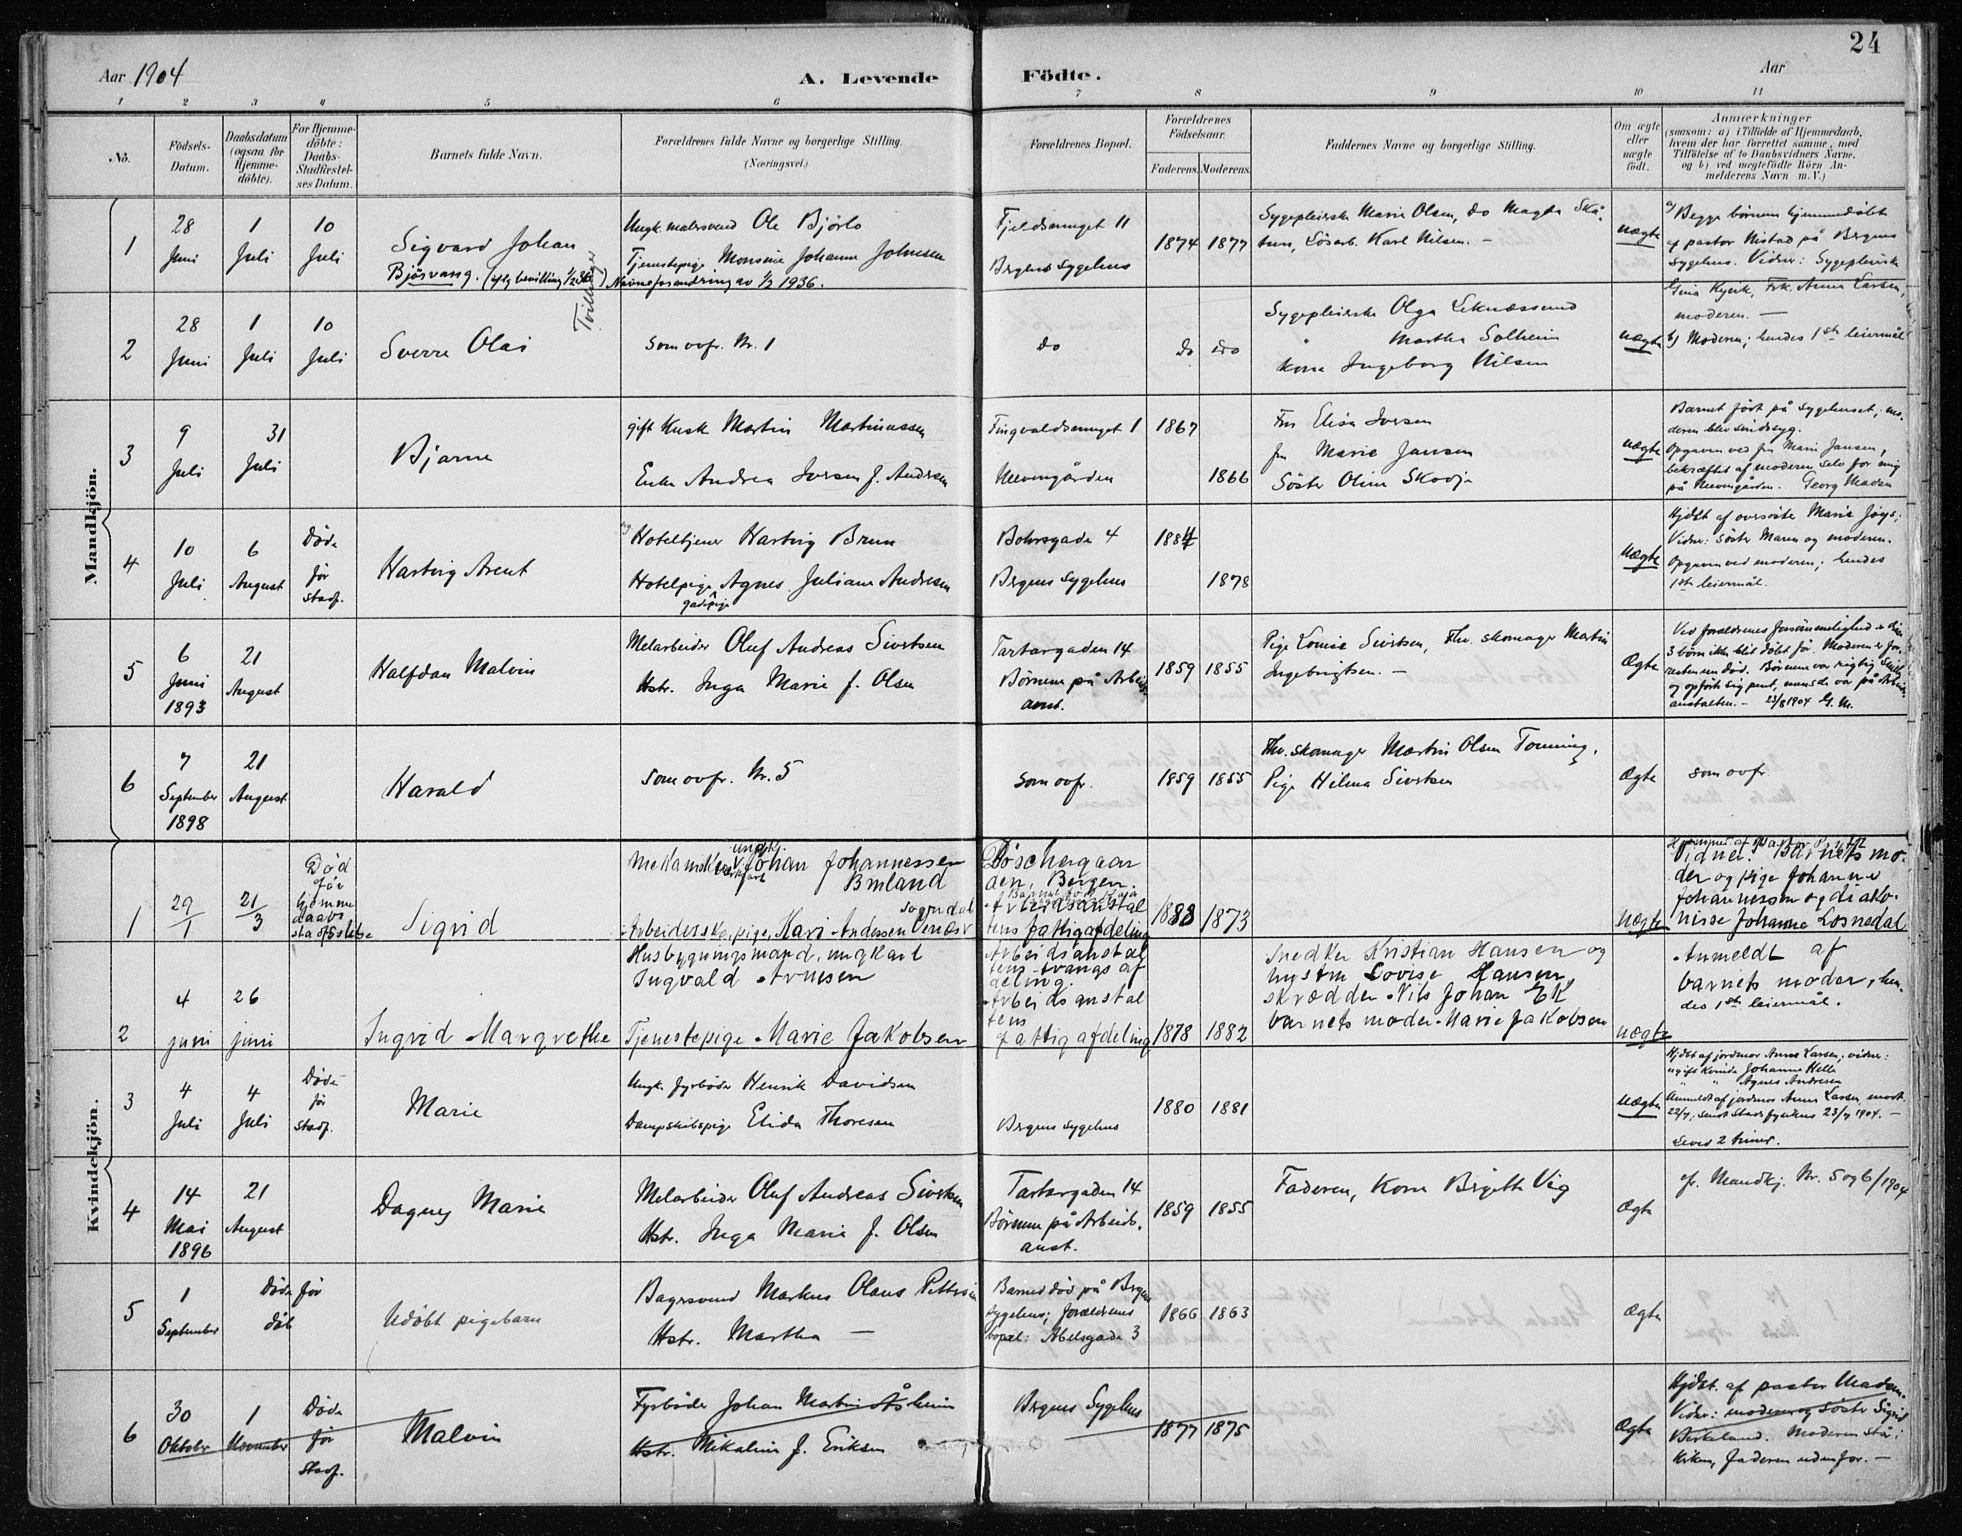 24
Aar 1904
A. Levende Födte.
Aar
1 2 3 4 5 6 7 8 9 10 11
No.
Födsels-Datum.
Daabsdatum (ogsaa for Hjemme-döbte).
For Hjemme-döbte: Daabs-Stadfæstel-ses Datum.
Barnets fulde Navn.
Forældrenes fulde Navne og borgerlige Stilling. (Næringsvei.)
Forældrenes Bopæl.
Forældrenes Födselsaar.
Faderens. Moderens.
Faddernes Navne og borgerlige Stilling.
Om ægte eller uægte födt.
Anmærkninger (saasom: a) i Tilfælde af Hjemmedaab, hvem der har forrettet samme, med Tilföielse af to Daabsvidners Navne, og b) ved uægtefödte Börn An-melderens Navn m. V.)
Mandkjön.
1
28 Juni
1 Juli
10 Juli
Sigvard Johan
Bjørvang. (iflg bevilling 1/2 36) Navneforandring av 1/2 1936.
Tvillinger
Ungk. malersvend Ole Bjørlo
Tjenestepige Monsine Johanne Johnsen
Fjeldsmuget 11
Bergens Sygehus
1874 1877
Sygepleierske Marie Olsen, do Magda
Løsarb. Karl Nilsen. —
uægte
a) Begge börnene hjemmedöbt
af pastor Nistad på Bergens
Sygehus. Vidner: Sygepleierske
Frk. Anna Larsen,
moderen. —
2
28 Juni
1 Juli
10 Juli
Sverre Olai
som ovfr. Nr. 1
do
do do
Sygepleierske Olga Leknæssund
" Martha Solheim
Kone Ingeborg Nilsen
uægte
b) Moderen; hendes 1ste leiermål
3
9 Juli
31 Juli
Bjarne
gift Kusk Martin Martinussen
Enke Andrea Iversen f. Andersen
Tingvaldsmuget 1
Neevengården
1867
1866
Fru Elisa Iversen
fru Marie Jansen
Söster Oline Skovje
uægte
Barnet födt på Sygehuset; mo-
deren blev sindssyg.
Opgaven ved fru Marie Jansen,
bekræftet af moderen selv for mig
på Neevengården. Georg Madsen
4
10 Juli
6 August
Døde før stadf.
Hartvig Arent
Hoteltjener Hartvig Brun
Hotelpige Agnes Juliane Andresen
gadepige
Bohrsgade 4
Bergens Sygehus
1884
1878
uægte
Hjdbt af oversöster Marie Jøys;
Vidner: söster Maren og moderen.
Opgaven ved moderen; hendes
1ste leiermål.
5
6 Juni 1893
21 August
Halfdan Malvin
Melarbeider Oluf Andreas Sivertsen
Hstr. Inga Marie f. Olsen
Tartargaden 14
Börnene på Arbeids
anst.
1859 1855
Pige Lovise Sivertsen, Fhv. skomager Martin
Ingebrigtsen. —
Ægte
Ved forældrenes forsömmelighed er disse
3 börn ikke blit döbt för. Moderen er for-
resten nu död. Börnene var rigtig snille
og opførte sig pent, mens de var på Arbeids-
anstalten. — 23/8 1904 G. M.
6
7 September 1898
21 August
Harald
som ovfr. Nr. 5
som ovfr.
1859 1855
Fhv. skomager Martin Olsen Tonning,
Pige Hilma Sivertsen
Ægte
som ovfr
Kvindekjön.
1
29/1
21/3
Död før hjemme daabs stadfæstelse
Sigrid
ungk. Johan Johannessen
Bruland
Sogndal
Arbeiderske, pige, Kari Andersen
Döschergaar
den, Bergen.
Arbeidsanstal
tens fattigafdeling
1883 1873
uægte
Vidner: Barnets mo-
der og pige Johanne
Johannessen og diako-
nisse Johanne Losnedal
2
4 juni
26 juni
Ingrid Margrethe
Husbygningsmand, ungkarl
Ingvald Arnesen
Tjenestepige Marie Jakobsen
Arbeidsanstal
tens tvangsaf
deling.
Arbeidsanstal
tens
fattigafdeling
1878 1882
Snedker Kristian Hansen og
hustru Lovise Hansen,
skrædder Nils Johan Ek
barnets moder Marie Jakobsen
uægte
Anmeldt af
barnets moder, hen-
des 1ste leiermål.
3
4 Juli
4 Juli
Døde før stadf.
Marie
Ungk. fyrböder Henrik Davidsen
Dampskibspige Elida Thoresen
Bergens Sygehus
1880 1881
uægte
Hjdbt af jordmor Anna Larsen; vidner:
ugift kvinde Johanne Helle
" " Agnes Andresen
Anmeldt af jordmor Anna Larsen, modt.
22/7, sendt Stadsfysikus 23/7 1904. —
Levede 2 timer.
4
14 Mai 1896
21 August
Dagny Marie
Melarbeider Oluf Andreas Sivertsen
Hstr. Inga Marie f. Olsen
Tartargaden 14
Börnene på Arbeids.
anst.
1859 1855
Faderen, Kone Birgitte Vig
Ægte
cfr. Mandkj. Nr. 5 og 6/1904
5
1 September
Døde før dåb
Udöbt pigebarn
Bagersvend Markus Olaus Pettersen
Hstr. Martha —
Barnet död på Bergens
Sygehus; forældrenes
bopæl: Abelsgade 3
1866 1863
Ægte
6
30 Oktober
1 November
Døde før stadf.
Malvin
Fyrböder Johan Martin Åsheim
Hstr. Mikaline f. Eriksen
Bergens Sygehus
1877 1875
Ægte
Hjdbt. af pastor Madsen.
Vidner: moderen og söster Sigrid
Birkeland. Moderen står i
kirken, faderen udenfor. —